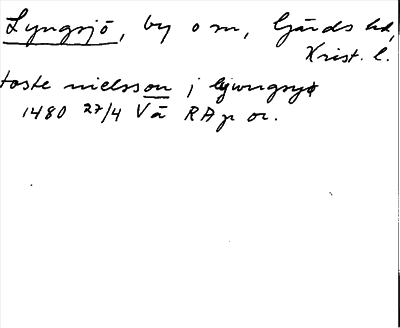 Lyngsjö, by o sn, Gärds hd,
Krist. l.
toste nielsson j lywngsyø
1480 27/4 Vä RAp or.